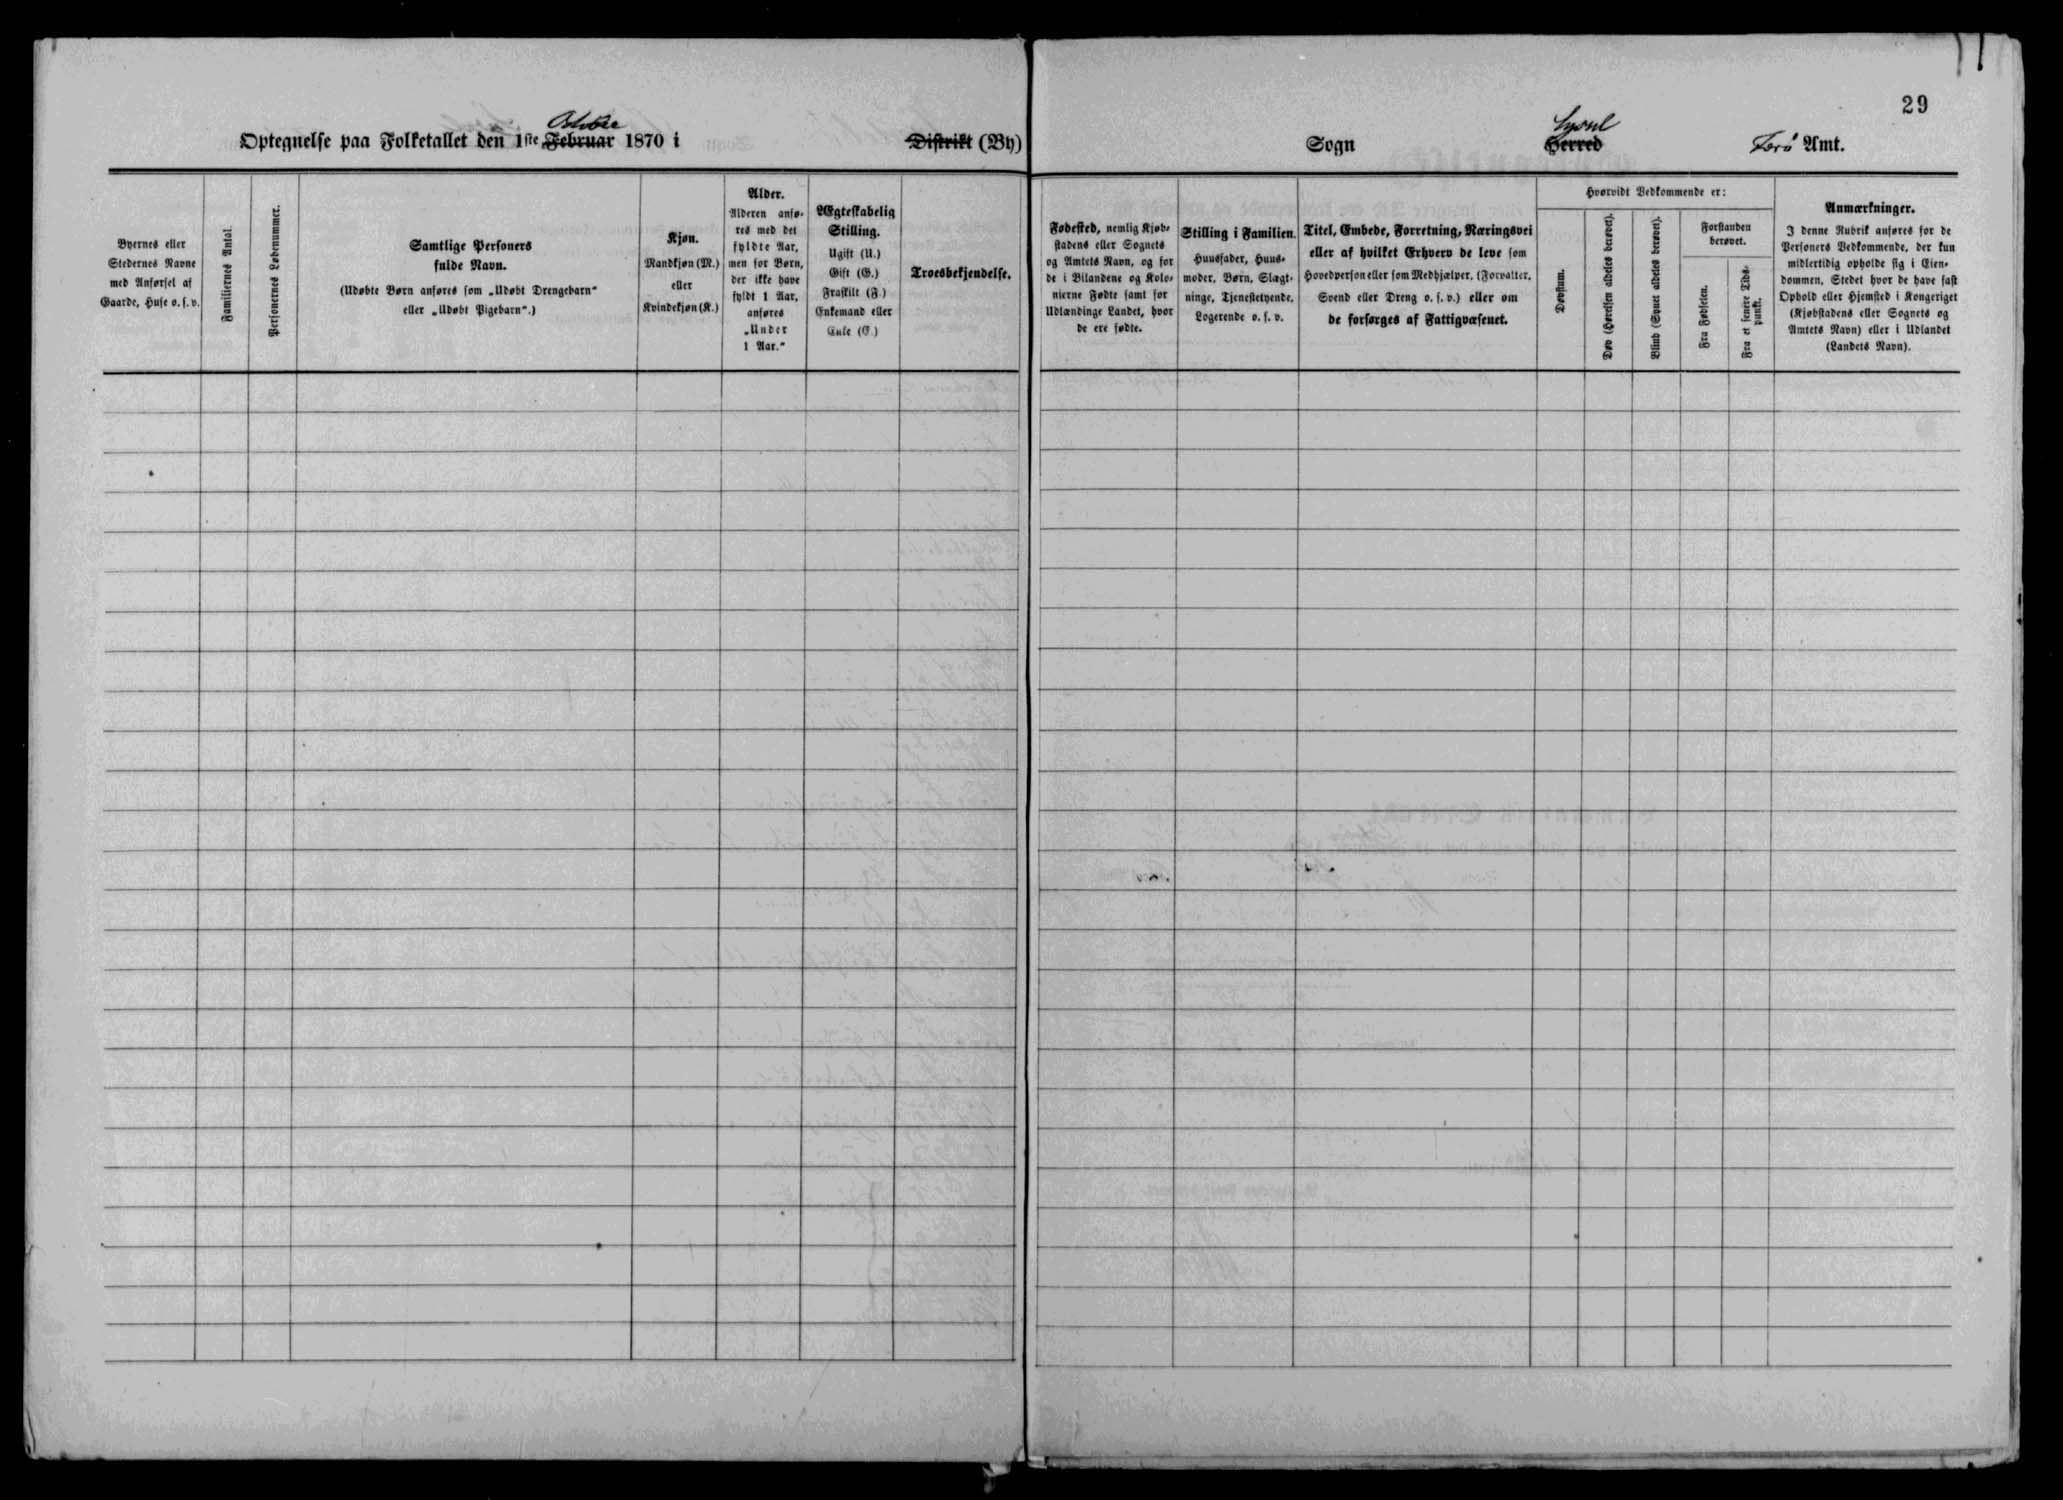 29
Oktober
Optegnelse paa Folketallet den 1ste Februar 1870 i Distrikt (By)
Syssel
Sogn Herred Færø Amt.
Byernes eller
Stedernes Navne
med Anførsel af
Gaarde, Huse o. s. v.
Familiernes Antal.
Personernes Løbenummer.
Samtlige Personers
fulde Navn.
(Udøbte Børn anføres som „Udøbt Drengebarn“
eller „Udøbt Pigebarn“.)
Kjøn.
Mandkjøn (M.)
eller
Kvindekjøn (K.)
Alder.
Alderen anfø-
res med det
fyldte Aar,
men for Børn,
der ikke have
fyldt 1 Aar,
anføres
„Under
1 Aar.“
Ægteskabelig
Stilling.
Ugift (U.)
Gift (G.)
Fraskilt (F.)
Enkemand eller
Enke (E.)
Troesbekjendelse.
Fødested, nemlig Kjøb-
stadens eller Sognets
og Amtets Navn, og for
de i Bilandene og Kolo-
nierne Fødte samt for
Udlændinge Landet, hvor
de ere fødte.
Stilling i Familien.
Huusfader, Huus-
moder, Børn, Slægt-
ninge, Tjenestetyende,
Logerende o. s. v.
Titel, Embede, Forretning, Næringsvei
eller af hvilket Erhverv de leve som
Hovedperson eller som Medhjælper, (Forvalter,
Svend eller Dreng o. s. v.) eller om
de forsørges af Fattigvæsenet.
Hvorvidt Vedkommende er:
Døvstum.
Døv (Hørelsen aldeles berøvet).
Blind (Synet aldeles berøvet).
Forstanden
berøvet.
Fra Fødselen.
Fra et senere Tids-
punkt.
Anmærkninger.
I denne Rubrik anføres for de
Personers Vedkommende, der kun
midlertidig opholde sig i Eien-
dommen, Stedet hvor de have fast
Ophold eller Hjemsted i Kongeriget
(Kjøbstadens eller Sognets og
Amtets Navn) eller i Udlandet
(Landets Navn).